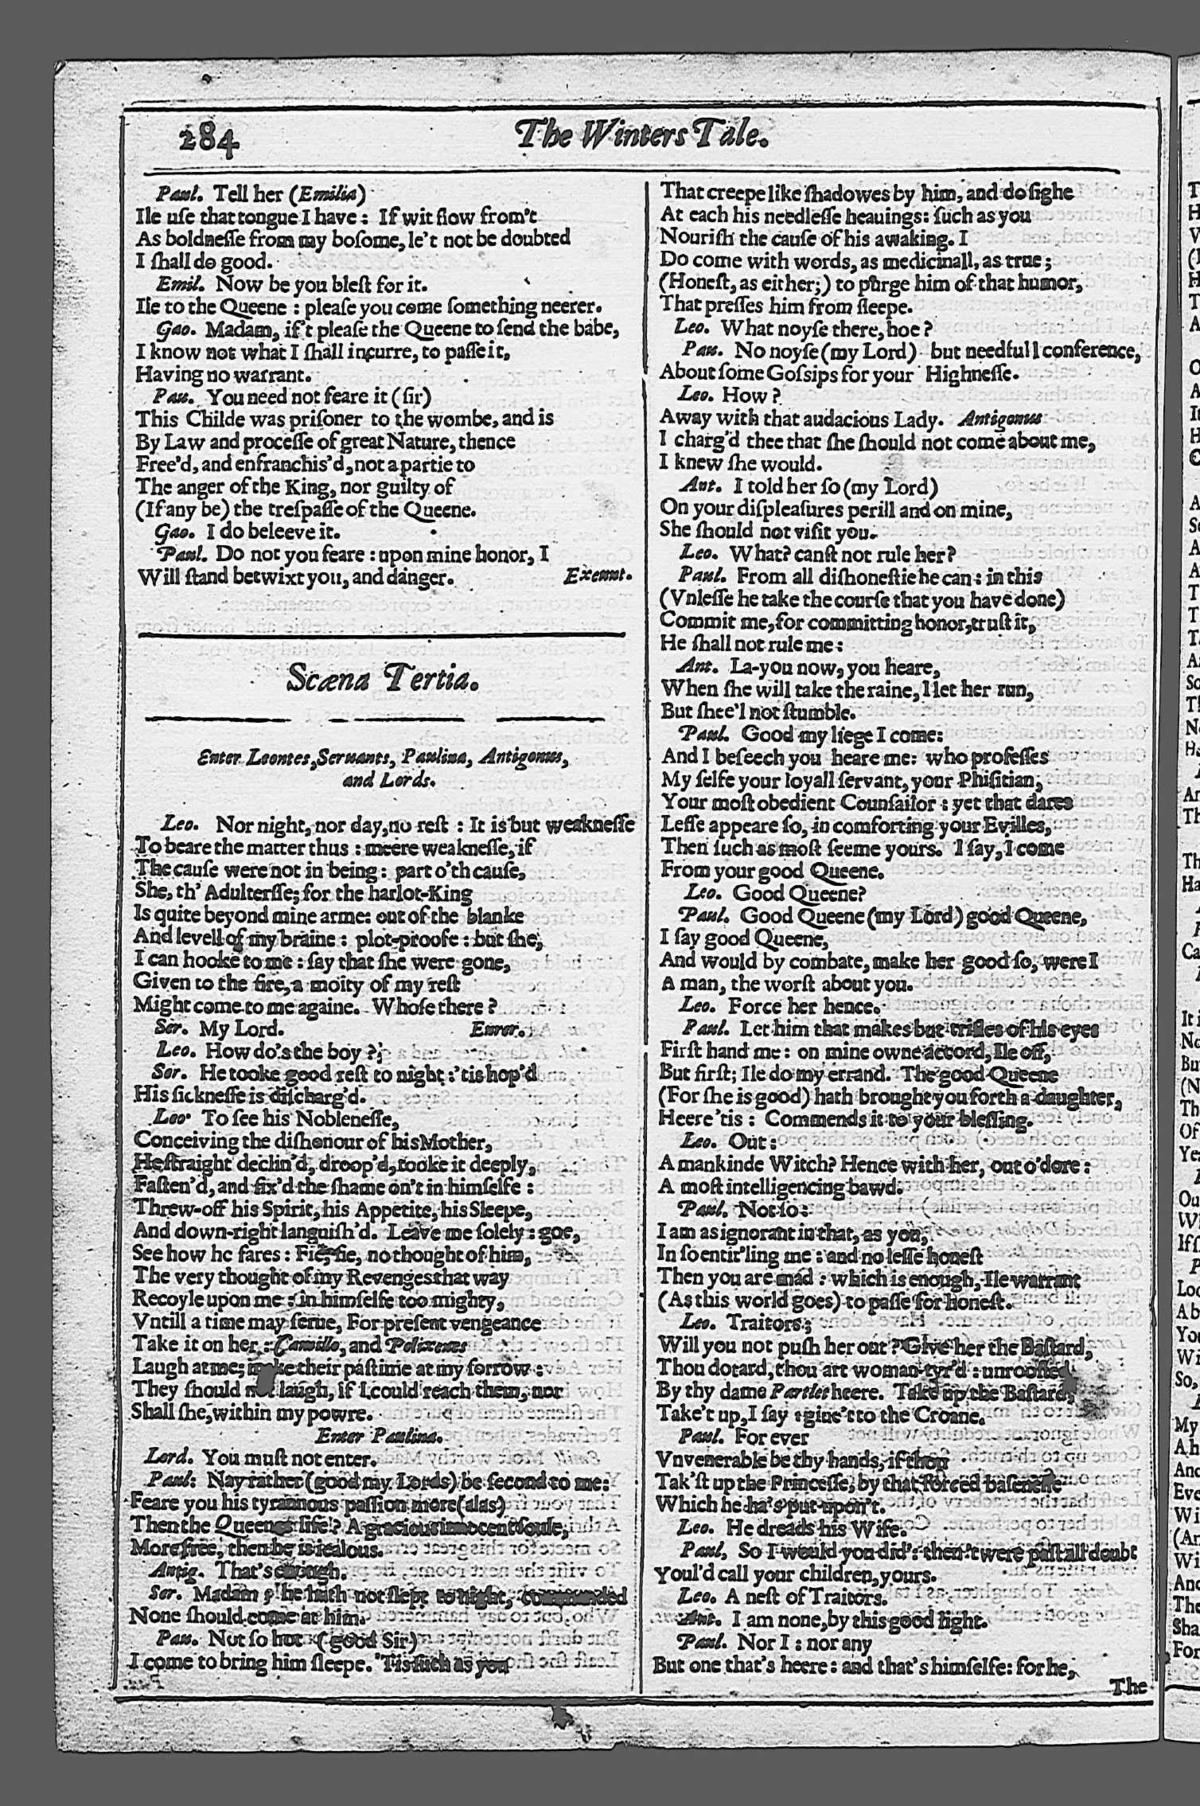 284
The Winters Tale.
Paul. Tell her (Emilia)
Ile vſe that tongue I haue : If wit flow from't
As boldneſſe from my boſome, le't not be doubted
I ſhall do good.
Emil. Now be you bleſt for it.
Ile to the Queene : pleaſe you come ſomething neerer.
Gao. Madam, if't pleaſe the Queene to ſend the babe,
I know not what I ſhall incurre, to paſſe it,
Hauing no warrant.
Pau. You need not feare it (ſir)
This Childe was priſoner to the wombe, and is
By Law and proceſſe of great Nature, thence
Free'd, and enfranchis'd, not a partie to
The anger of the King, nor guilty of
(If any be) the treſpaſſe of the Queene.
Gao. I do beleeve it.
Paul. Do not you feare : vpon mine honor, I
Will ſtand betwixt you, and danger. Exeunt.
Scæna Tertia.
Enter Leontes, Seruants, Paulina, Antigonus,
and Lords.
Leo. Nor night, nor day, no reſt : It is but weakneſſe
To beare the matter thus : meere weakneſſe, if
The cauſe were not in being : part o'th cauſe,
She, th' Adultreſſe; for the harlot-King
Is quite beyond mine arme: out of the blanke
And leuell of my braine : plot-proofe : but ſhe,
I can hooke to me : ſay that ſhe were gone,
Giuen to the fire, a moity of my reſt
Might come to me againe. Whoſe there ?
Ser. My Lord. Enter.
Leo. How do's the boy ?
Ser. He tooke good reſt to night : 'tis hop'd
His ſickneſſe is diſcharg'd.
Leo. To ſee his Nobleneſſe,
Conceiuing the diſhonour of his Mother,
He ſtraight declin'd, droop'd, tooke it deeply,
Faſten'd, and fix'd the ſhame on't in himſelfe :
Threw-off his Spirit, his Appetite, his Sleepe,
And down-right languiſh'd. Leaue me ſolely : goe,
See how he fares : Fie, fie, no thought of him,
The very thought of my Reuenges that way
Recoyle vpon me : in himſelfe too mighty,
Vntill a time may ſerue, For preſent vengeance
Take it on her : Camillo, and Polixenes
Laugh at me; make their paſtime at my ſorrow :
They ſhould not laugh, if I could reach them, nor
Shall ſhe, within my powre.
Enter Paulina.
Lord. You muſt not enter.
Paul. Nay rather (good my Lords) be ſecond to me:
Feare you his tyrannous paſſion more (alas)
Then the Queenes life ? A gracious innocent ſoule,
More free, then he is iealous.
Antig. That's enough.
Ser. Madam ; he hath not ſlept to night, commanded
None ſhould come at him.
Pau. Not ſo hot (good Sir)
I come to bring him ſleepe. 'Tis ſuch as you
That creepe like ſhadowes by him, and do ſighe
At each his needleſſe heauings: ſuch as you
Nouriſh the cauſe of his awaking. I
Do come with words, as medicinall, as true ;
(Honeſt, as either;) to purge him of that humor,
That preſſes him from ſleepe.
Leo. What noyſe there, hoe ?
Pau. No noyſe (my Lord) but needfull conference,
About ſome Goſsips for your Highneſſe.
Leo. How ?
Away with that audacious Lady. Antigonus
I charg'd thee that ſhe ſhould not come about me,
I knew ſhe would.
Ant. I told her ſo (my Lord)
On your diſpleaſures perill and on mine,
She ſhould not viſit you.
Leo. What? canſt not rule her ?
Paul. From all diſhoneſtie he can : in this
(Vnleſſe he take the courſe that you haue done)
Commit me, for committing honor, truſt it,
He ſhall not rule me :
Ant. La-you now, you heare,
When ſhe will take the raine, I let her run,
But ſhee'l not ſtumble.
Paul. Good my liege I come:
And I beſeech you heare me: who profeſſes
My ſelfe your loyall ſervant, your Phiſitian,
Your moſt obedient Counſailor : yet that dares
Leſſe appeare ſo, in comforting your Evilles,
Then ſuch as moſt ſeeme yours. I ſay, I come
From your good Queene.
Leo. Good Queene?
Paul. Good Queene (my Lord) good Queene,
I ſay good Queene,
And would by combate, make her good ſo, were I
A man, the worſt about you.
Leo. Force her hence.
Paul. Let him that makes but trifles of his eyes
Firſt hand me: on mine owne accord, Ile off,
But firſt; Ile do my errand. The good Queene
(For ſhe is good) hath brought you forth a daughter,
Heere 'tis : Commends it to your bleſſing.
Leo. Out :
A mankinde Witch? Hence with her, out o'dore :
A moſt intelligencing bawd.
Paul. Not ſo:
I am as ignorant in that, as you,
In ſo entit'ling me : and no leſſe honeſt
Then you are mad : which is enough, Ile warrant
(As this world goes) to paſſe for honeſt.
Leo. Traitors;
Will you not puſh her out ? Giue her the Baſtard,
Thou dotard, thou art woman-tyr'd : unrooſted
By thy dame Partlet heere. Take up the Baſtard,
Take't up, I ſay : giue't to the Croane.
Paul. For ever
Vnvenerable be thy hands, if thou
Tak'ſt up the Princeſſe, by that forced baſeneſſe
Which he ha's put upon't.
Leo. He dreads his Wife.
Paul, So I would you did : then 't were paſt all doubt
Youl'd call your children, yours.
Leo. A neſt of Traitors.
Ant. I am none, by this good light.
Paul. Nor I : nor any
But one that's heere : and that's himſelfe: for he,
The